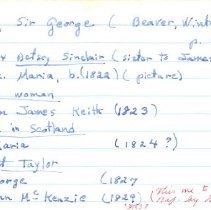 , Sir George ( Beaver, Wint
p.
x Betsy Sinclair (sister to James
. Maria, b.(1822) (picture)
woman
n James Keith (1823)
in Scotland
aria (1824?)
t Taylor
orge (1827
hn McKenzie (1829)